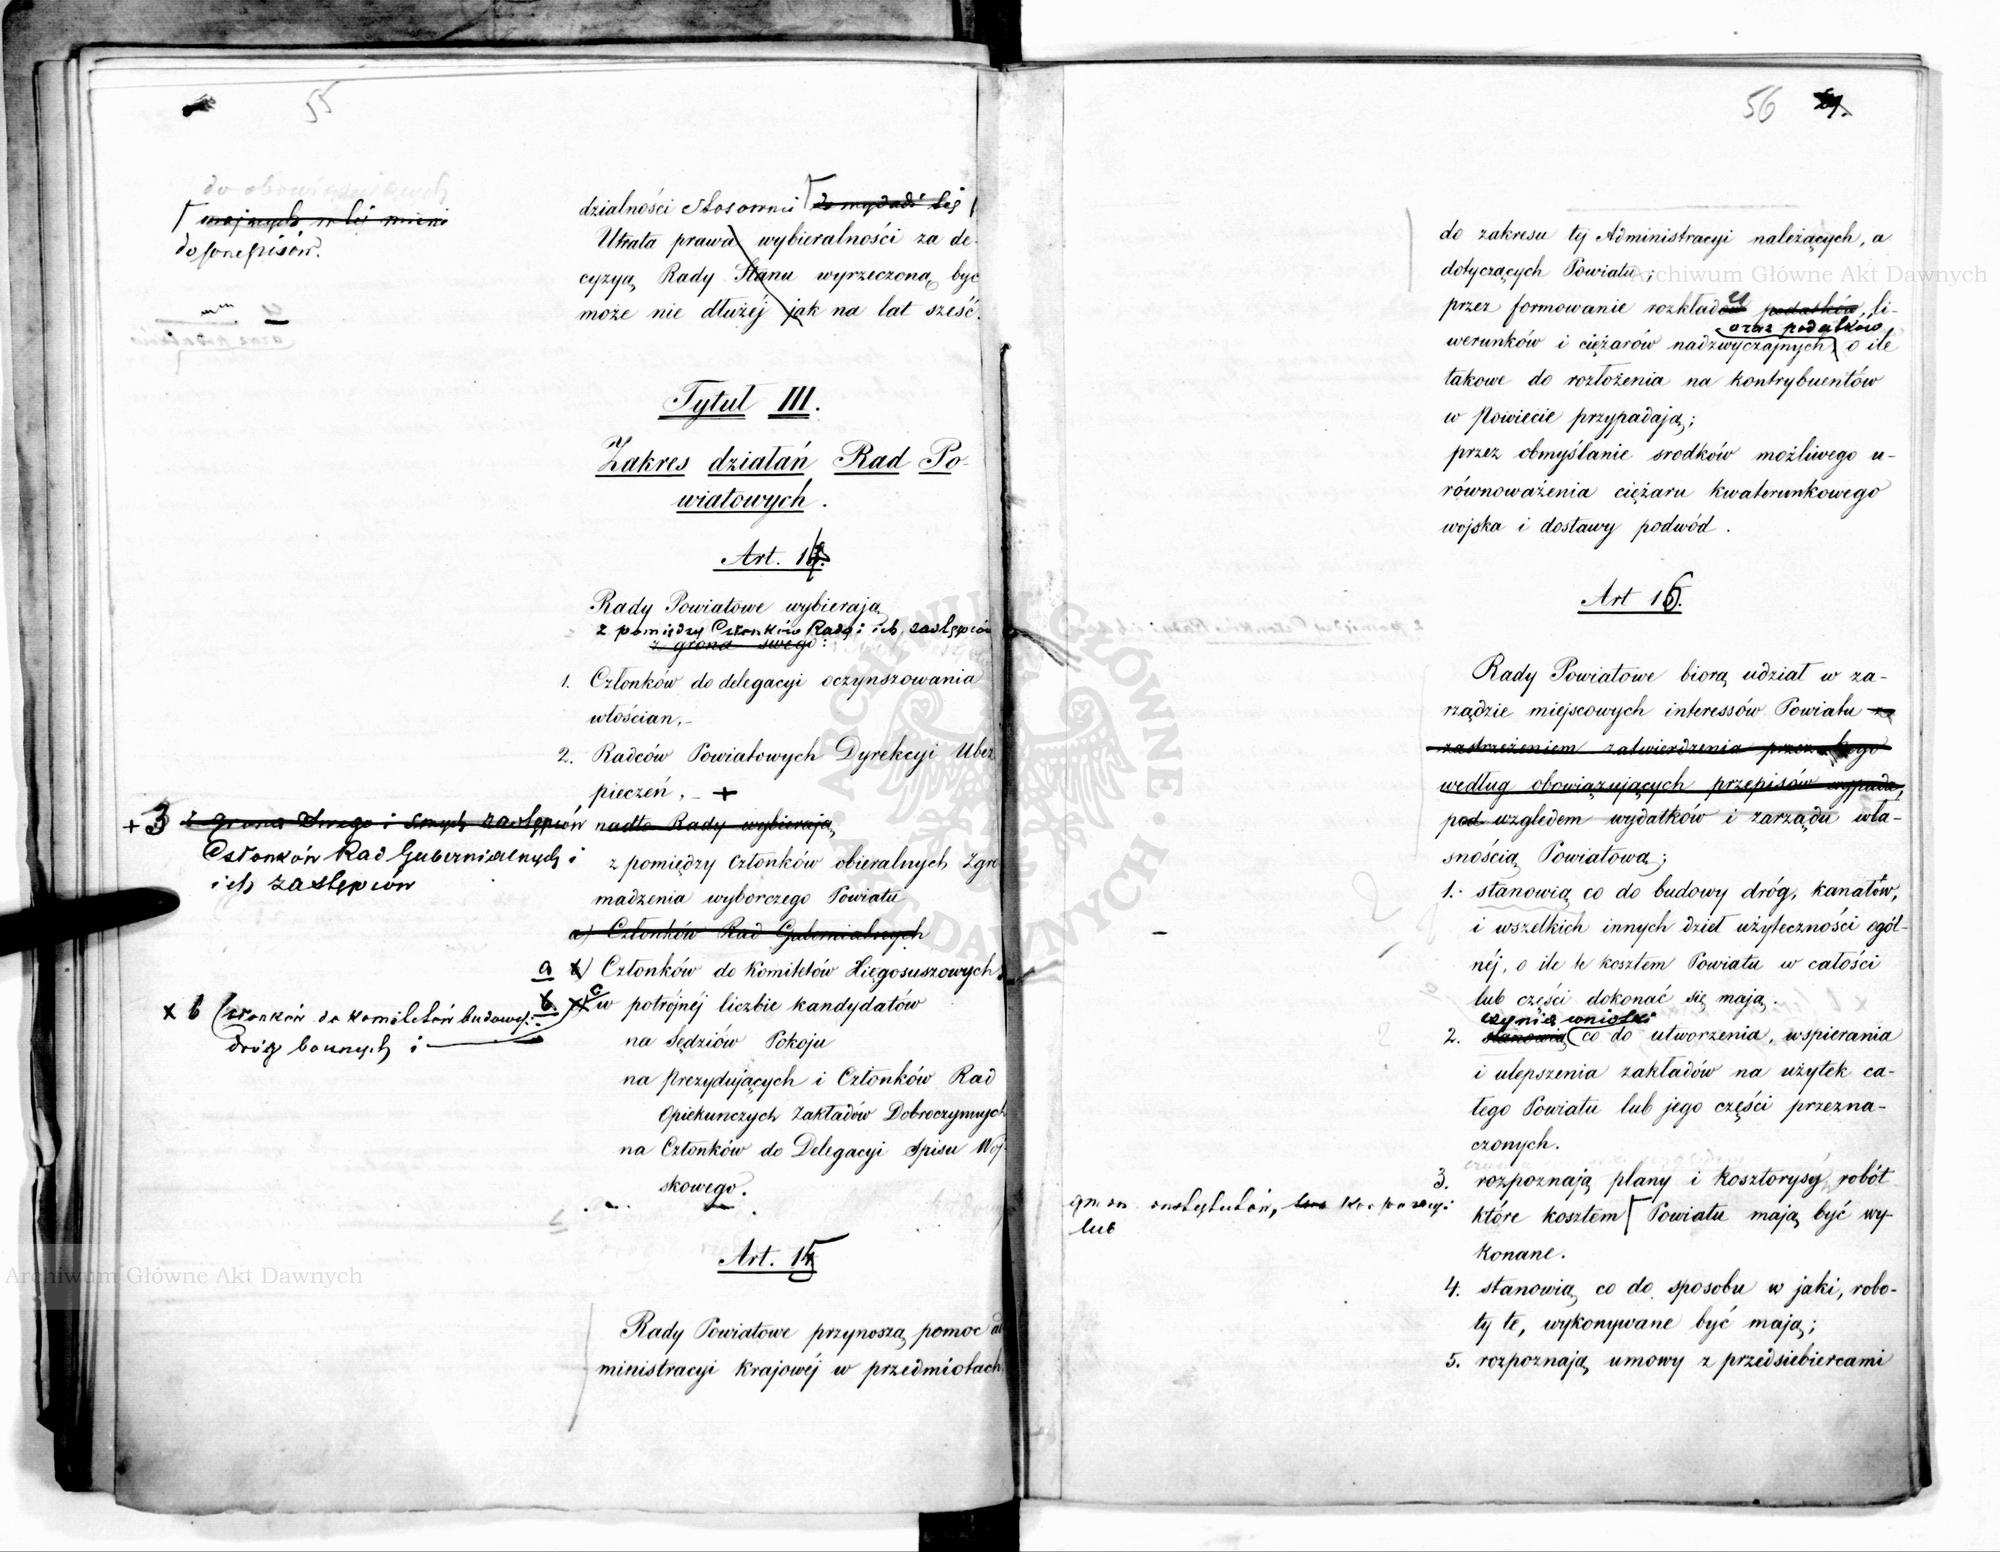 55
do obowiązujących
do przepisów.
działności stosownie
Utrata prawa wybieralności za de-
cyzyą Rady Stanu wyrzeczoną być
może nie dłużéj jak na lat sześć.
Tytuł III.
Zakres działań Rad Po-
wiatowych.
Art. 14.
Rady Powiatowe wybierają
z pomiędzy Członków Rady i ich zastępców
z grona swego:
1. Członków do delegacyi oczynszowania
włościan.-
2. Radców Powiatowych Dyrekcyi Ubez
pieczeń. - +
+ 3 z grona swego i swych zastępców
Członków Rad Gubernialnych i
ich zastępców
nadto Rady wybierają
z pomiędzy członków obieralnych Zgro
madzenia wyborczego Powiatu
a) Członków Rad Gubernialnych
a b) Członków do Komitetów Księgosuszowych
x b Członków do Komitetów budowy
dróg bocznych i
c w potrójnéj liczbie kandydatów
na Sędziów Pokoju
na Prezydujących i Członków Rad
Opiekuńczych Zakładów Dobroczynnych
na Członków do Delegacyi Spisu Woj-
skowego.
Art. 15
Rady Powiatowe przynoszą pomoc ad
ministracyi krajowéj w przedmiotach
Archiwum Główne Akt Dawnych
56
do zakresu téj Administracyi należących, a
dotyczących Powiatu;
Archiwum Główne Akt Dawnych
przez formowanie rozkładu podatków, li-
oraz podatków
werunków i ciężarów nadzwyczajnych o ile
takowe do rozłożenia na kontrybuentów
w Powiecie przypadają;
przez obmyślanie srodków możliwego u-
równoważenia ciężaru kwaterunkowego
wojska i dostawy podwód.
Art 16.
Rady Powiatowe biorą udział w za-
rządzie miejscowych interessów Powiatu z
zastrzeżeniem zatwierdzenia przez kogo
według obowiązujących przepisów wypada,
pod względem wydatków i zarządu wła-
snością Powiatową;
1. stanowią co do budowy dróg, kanałów,
i wszelkich innych dzieł użyteczności ogól-
néj, o ile te kosztem Powiatu w całości
lub części dokonać się mają.
czynią wnioski
2. stanowią co do utworzenia, wspierania
i ulepszenia zakładów na użytek ca-
łego Powiatu lub jego części przezna-
czonych.
3. rozpoznają plany i kosztorysy robót
instytutów, korporacyi
lub
które kosztem Powiatu mają być wy-
konane.
4. stanowią co do sposobu w jaki, robo-
ty te, wykonywane być mają;
5. rozpoznają umowy z przedsiebiercami
ARCHIWUM GŁÓWNE AKT DAWNYCH